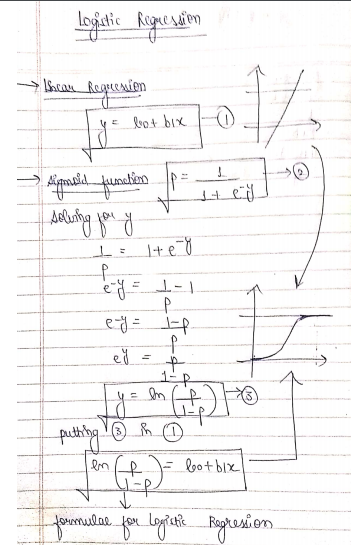 Logistic Regression
→ Linear Regression
y = b0 + b1x — ①
→ Sigmoid function p = 1 / (1 + e^-y) → ②
Solving for y
1/p = 1 + e^-y
e^-y = 1/p - 1
e^-y = (1-p)/p
e^y = p/(1-p)
y = ln (p/(1-p)) → ③
putting ③ in ①
ln (p/(1-p)) = b0 + b1x
formulae for Logistic Regression